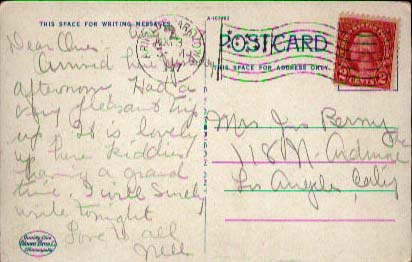 THIS SPACE FOR WRITING MESSAGES
POST CARD
THIS SPACE FOR ADDRESS ONLY
Dear Ones-
Arrived
afternoon. Had a
very pleasant trip
up. It is lovely
up here. Kiddies
having a grand
time. I will surely
write tonight
Love to all
Nell
Mrs Jos Berny
118 N Ardmore
Los Angeles, Calif
2 CENTS 2